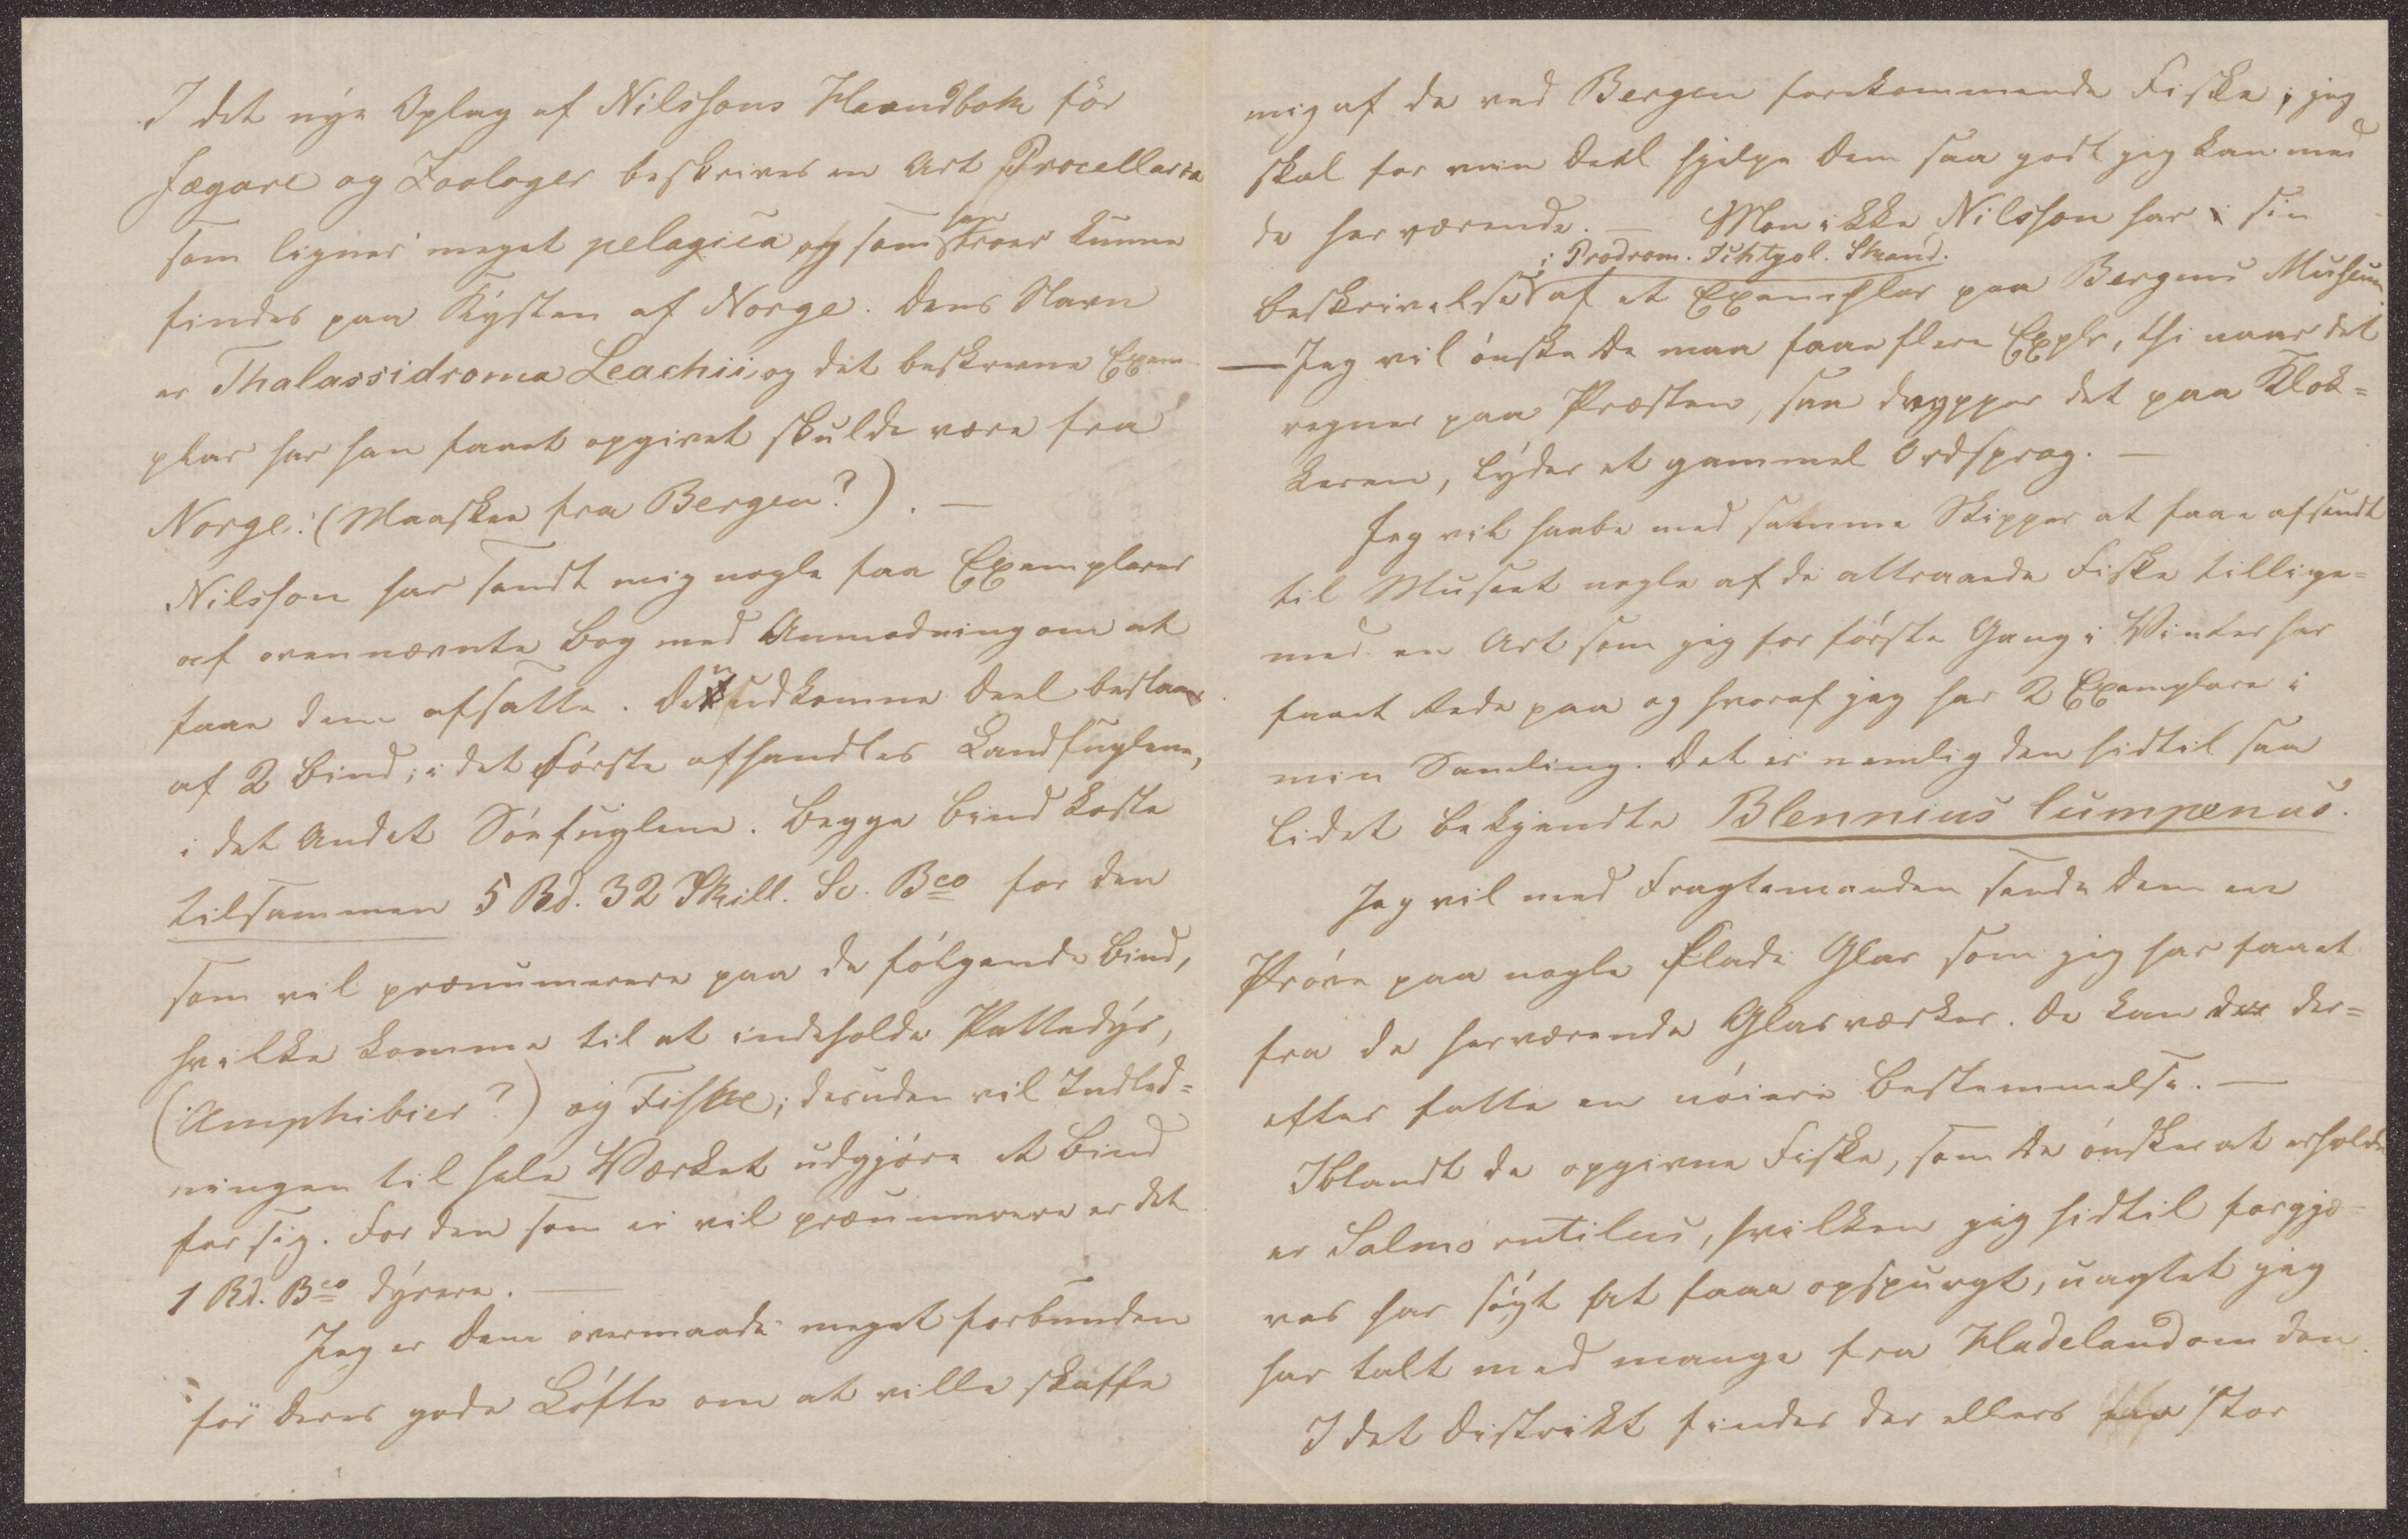 I det nye Oplag af Nilssons Haandbok för
Jægare og Zoologer beskrives en Art Procellaria
som ligner meget pelagica og som han troer kunne
findes paa Kysten af Norge. Dens Navn
er Thalassidroma Leachii, og det beskrevne Exem
plar har han faaet opgivet skulde være fra
Norge: (Maaskee fra Bergen?). —
Nilsson har sendt mig nogle faa Exemplarer
af ovennævnte Bog med Anmodning om at
faae dem afsatte. Den udkomne Deel bestaaer
af 2 Bind; i det første afhandles Landfuglene,
i det Andet Søefuglene. Begge Bind koste
tilsammen 5 Rd. 32 Skill. Sv. Bco for den
som vil prænumerere paa de følgende Bind,
hvilke komme til at indeholde Pattedyr,
(Amphibier?) og Fiske; desuden vil Indled=
ningen til hele Værket udgjøre et Bind
for sig. For den som ei vil prænumerere er det
1 Rd. Bco dyrere. —
Jeg er Dem overmaade meget forbunden
för Deres gode Løfte om at ville skaffe
mig af de ved Bergen forekommende Fiske; jeg
skal for min Deel hjelpe Dem saa godt jeg kan med
de herværende. — Mon ikke Nilsson har i sin
i Prodrom. Ichtyol. Skand.
beskrivelse af et Exemplar paa Bergens Museum.
— Jeg vil ønske De maa faae flere Explr, thi naar det
regner paa Præsten, saa drypper det paa Klok=
keren, lyder et gammel Ordsprog. —
Jeg vil haabe med samme Skipper at faae afsendt
til Museet nogle af de attraaede Fiske tillige=
med en Art som jeg for første Gang i Vinter har
faaet Rede paa og hvoraf jeg har 2 Exemplarer i
min Samling. Det er nemlig den hidtil saa
lidet bekjendte Blennius lumpenus.
Jeg vil med Fragtemanden sende Dem en
Prøve paa nogle flade Glas som jeg har faaet
fra de herværende Glasværker. De kan der der=
efter fatte en nøiere Bestemmelse. —
Iblandt de opgivne Fiske, som De ønsker at erholde
er Salmo rutilus, hvilken jeg hidtil forgjæ=
ves har søgt at faae opspurgt, uagtet jeg
har talt med mange fra Hadeland om den
I det Distrikt findes der ellers stor